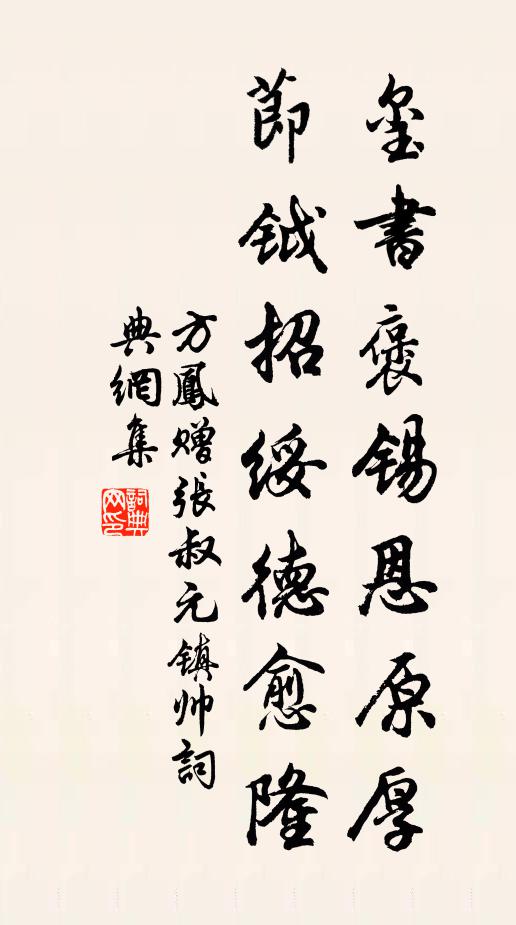 玺書褒錫恩原厚
節鉞招綏德愈隆
方鳳贈張叔元鎮帅詞
典網集
詞典网印